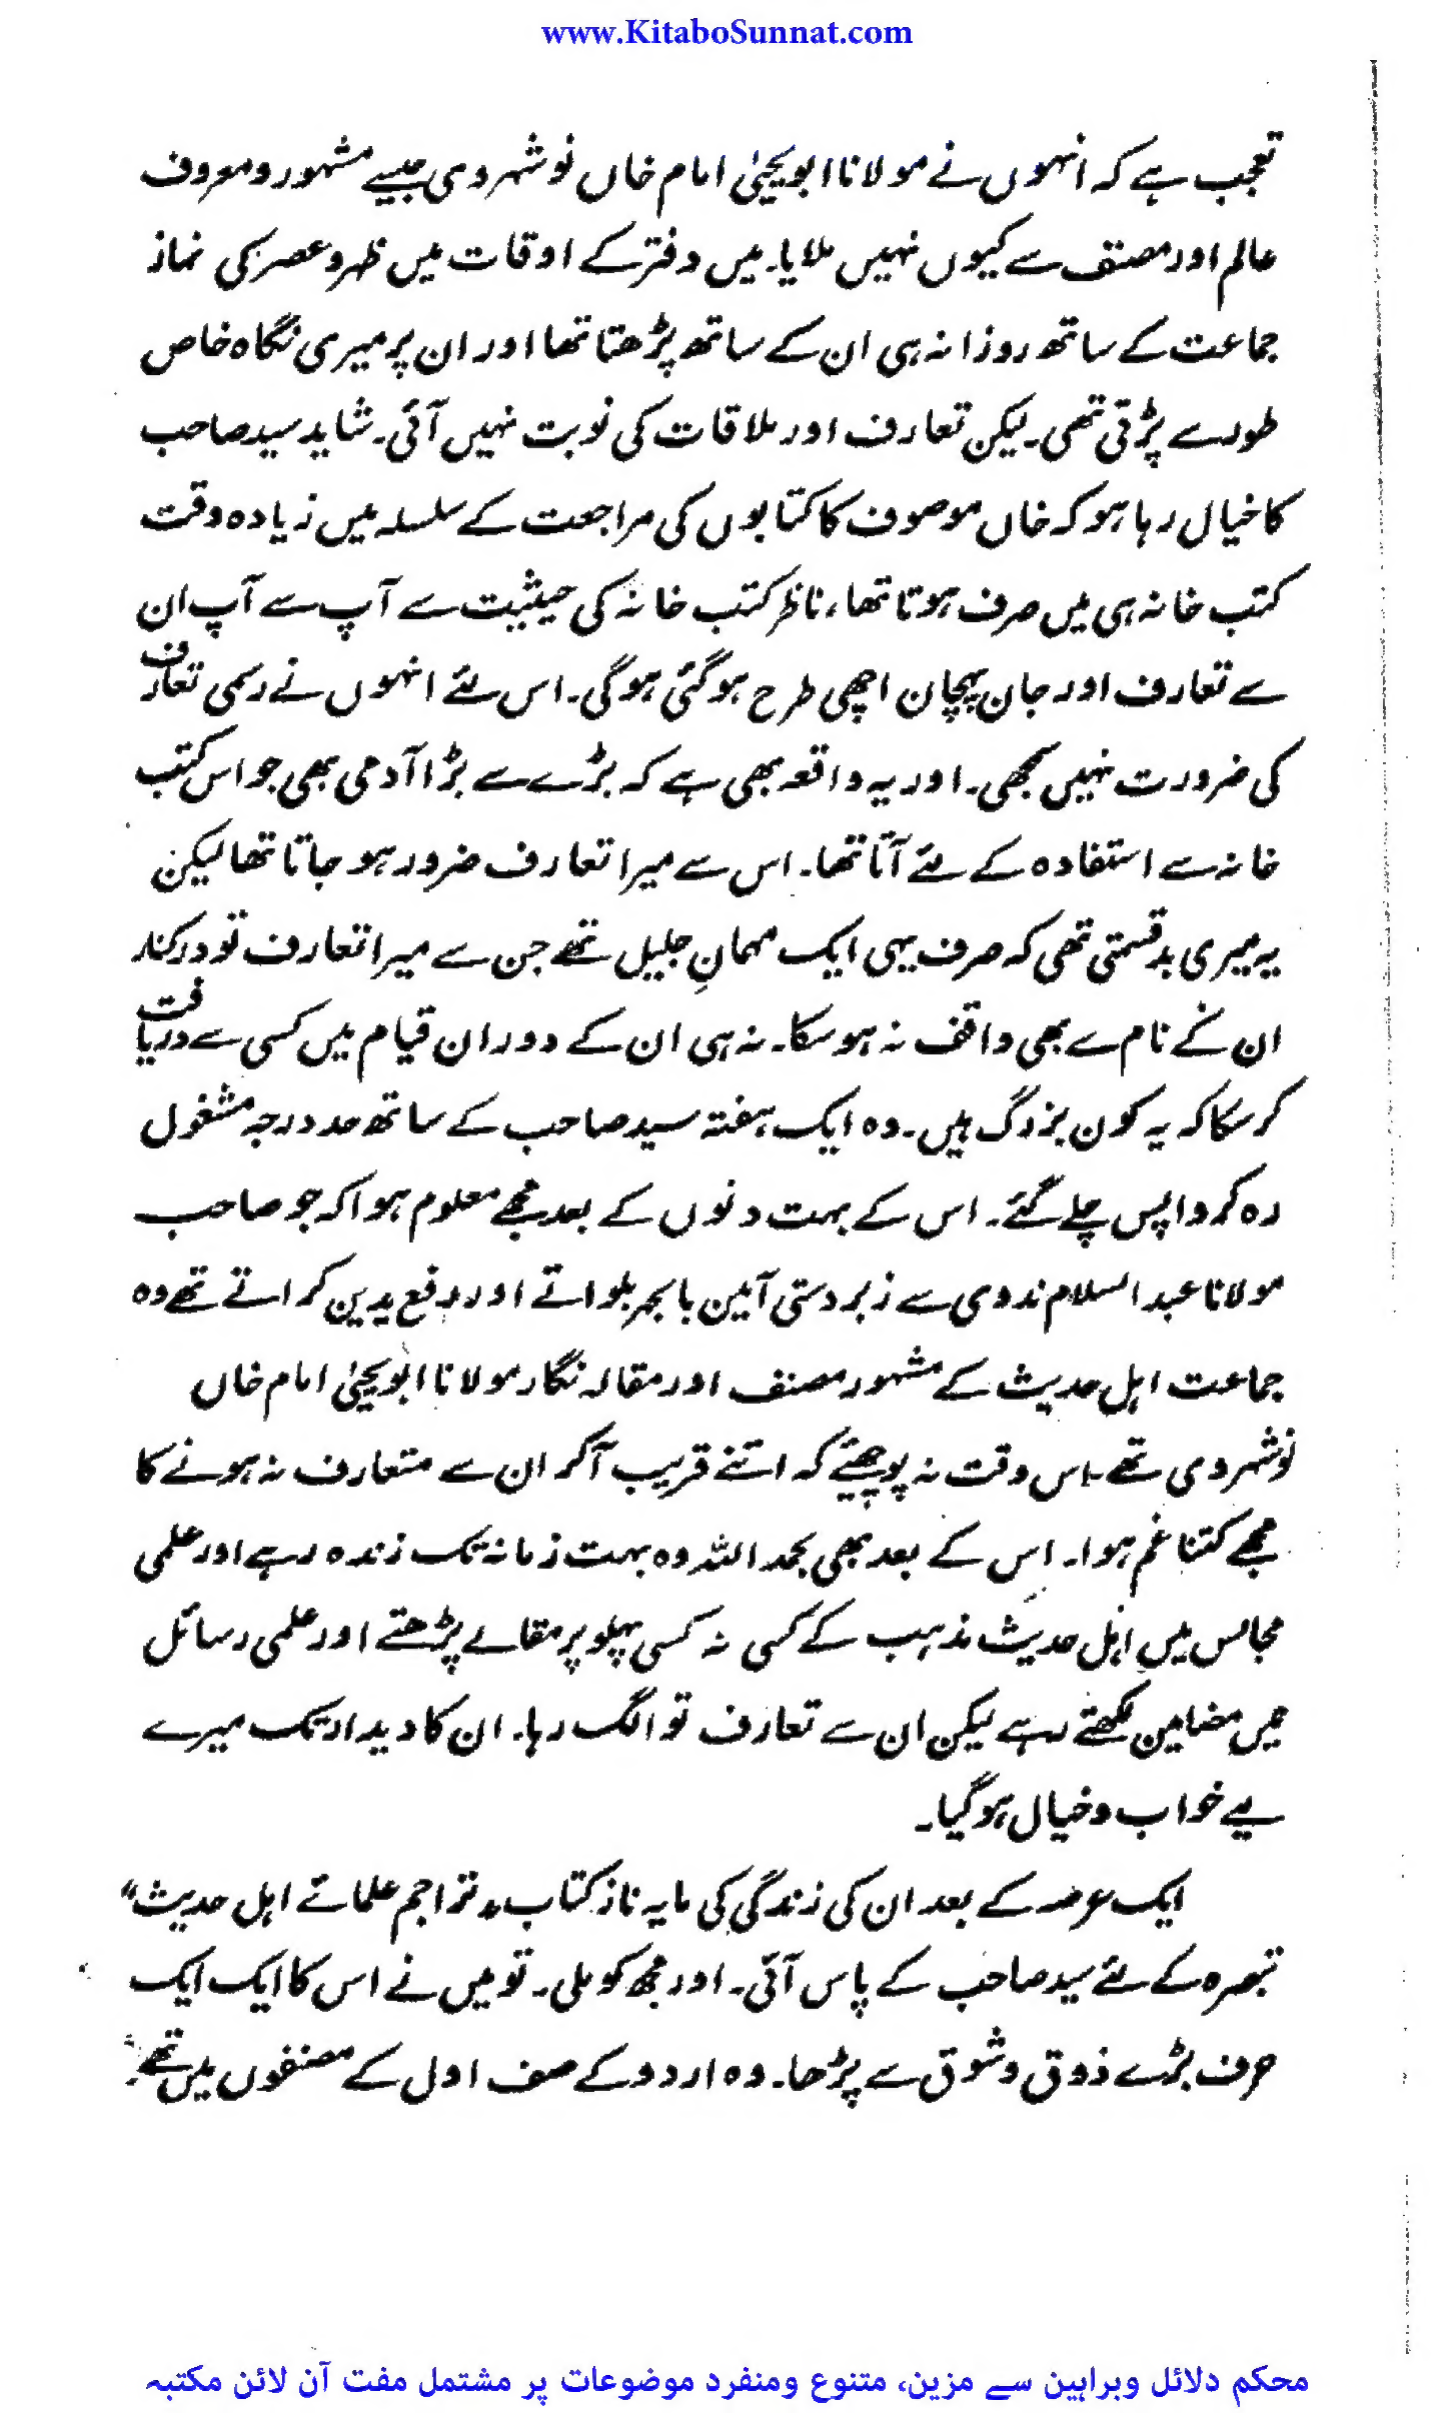 www.KitaboSunnat.com
تعجب ہے کہ انہوں نے مولانا ابو یحییٰ امام خاں نوشہروی جیسے مشہور و معروف
عالم اور مصنف سے کیوں نہیں ملایا۔ میں دفتر کے اوقات میں ظہر و عصر کی نماز
جماعت کے ساتھ روزانہ ہی ان کے ساتھ پڑھتا تھا اور ان پر میری نگاہ خاص
طور سے پڑتی تھی۔ لیکن تعارف اور ملاقات کی نوبت نہیں آئی۔ شاید سید صاحب
کا خیال رہا ہو کہ خاں موصوف کا کتابوں کی مراجعت کے سلسلہ میں زیادہ وقت
کتب خانہ ہی میں صرف ہوتا تھا، ناظر کتب خانہ کی حیثیت سے آپ سے آپ ان
سے تعارف اور جان پہچان اچھی طرح ہو گئی ہوگی۔ اس لئے انہوں نے رسمی تعارف
کی ضرورت نہیں سمجھی۔ اور یہ واقعہ بھی ہے کہ بڑے سے بڑا آدمی بھی جو اس کتب
خانہ سے استفادہ کے لئے آتا تھا۔ اس سے میرا تعارف ضرور ہو جاتا تھا لیکن
یہ میری بدقسمتی تھی کہ صرف یہی ایک مہمانِ جلیل تھے جن سے میرا تعارف تو درکنار
ان کے نام سے بھی واقف نہ ہو سکا۔ نہ ہی ان کے دوران قیام میں کسی سے دریافت
کر سکا کہ یہ کون بزرگ ہیں۔ وہ ایک ہفتہ سید صاحب کے ساتھ حد درجہ مشغول
رہ کر واپس چلے گئے۔ اس کے بہت دنوں کے بعد مجھے معلوم ہوا کہ جو صاحب
مولانا عبد السلام ندوی سے زبردستی آمین بالجہر بلواتے اور رفع یدین کراتے تھے وہ
جماعت اہل حدیث کے مشہور مصنف اور مقالہ نگار مولانا ابو یحییٰ امام خاں
نوشہروی تھے۔ اس وقت نہ پوچھئے کہ اتنے قریب آکر ان سے متعارف نہ ہونے کا
مجھے کتنا غم ہوا۔ اس کے بعد بھی بحمد اللہ وہ بہت زمانہ تک زندہ رہے اور علمی
مجالس میں اہل حدیث مذہب کے کسی نہ کسی پہلو پر مقالے پڑھتے اور علمی رسائل
میں مضامین لکھتے رہے لیکن ان سے تعارف تو الگ رہا۔ ان کا دیدار تک میرے
لیے خواب و خیال ہو گیا۔
ایک عرصہ کے بعد ان کی زندگی کی مایہ ناز کتاب "تراجم علمائے اہل حدیث"
تبصرہ کے لئے سید صاحب کے پاس آئی۔ اور مجھ کو ملی۔ تو میں نے اس کا ایک ایک
حرف بڑے ذوق و شوق سے پڑھا۔ وہ اردو کے صف اول کے مصنفوں میں تھے۔
محکم دلائل وبراہین سے مزین، متنوع ومنفرد موضوعات پر مشتمل مفت آن لائن مکتبہ